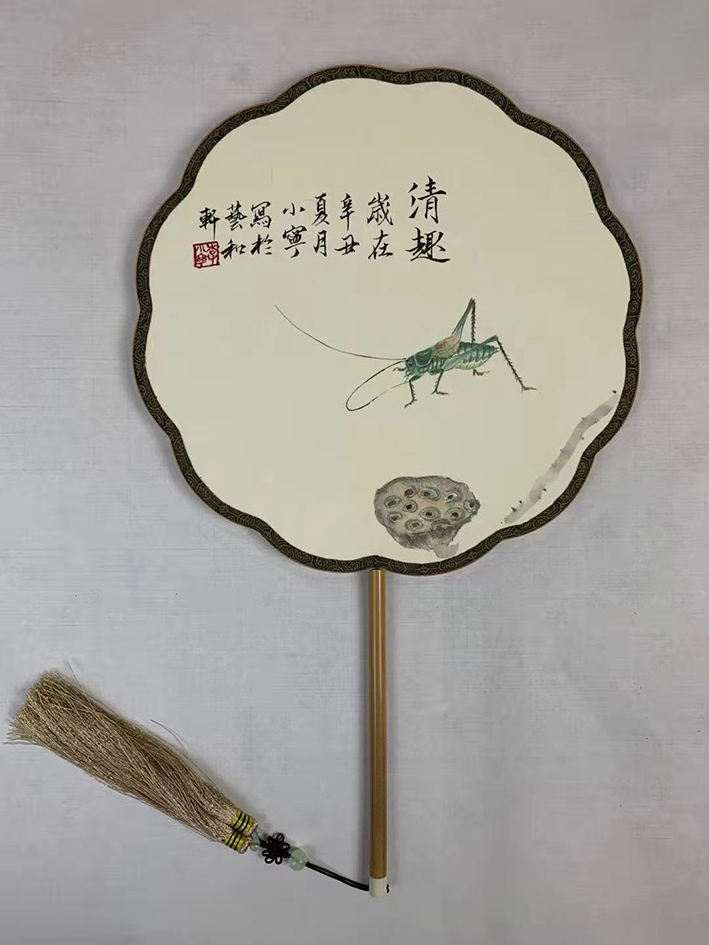 清趣
歲在
辛丑
夏月
小寧
寫於
藝和
軒